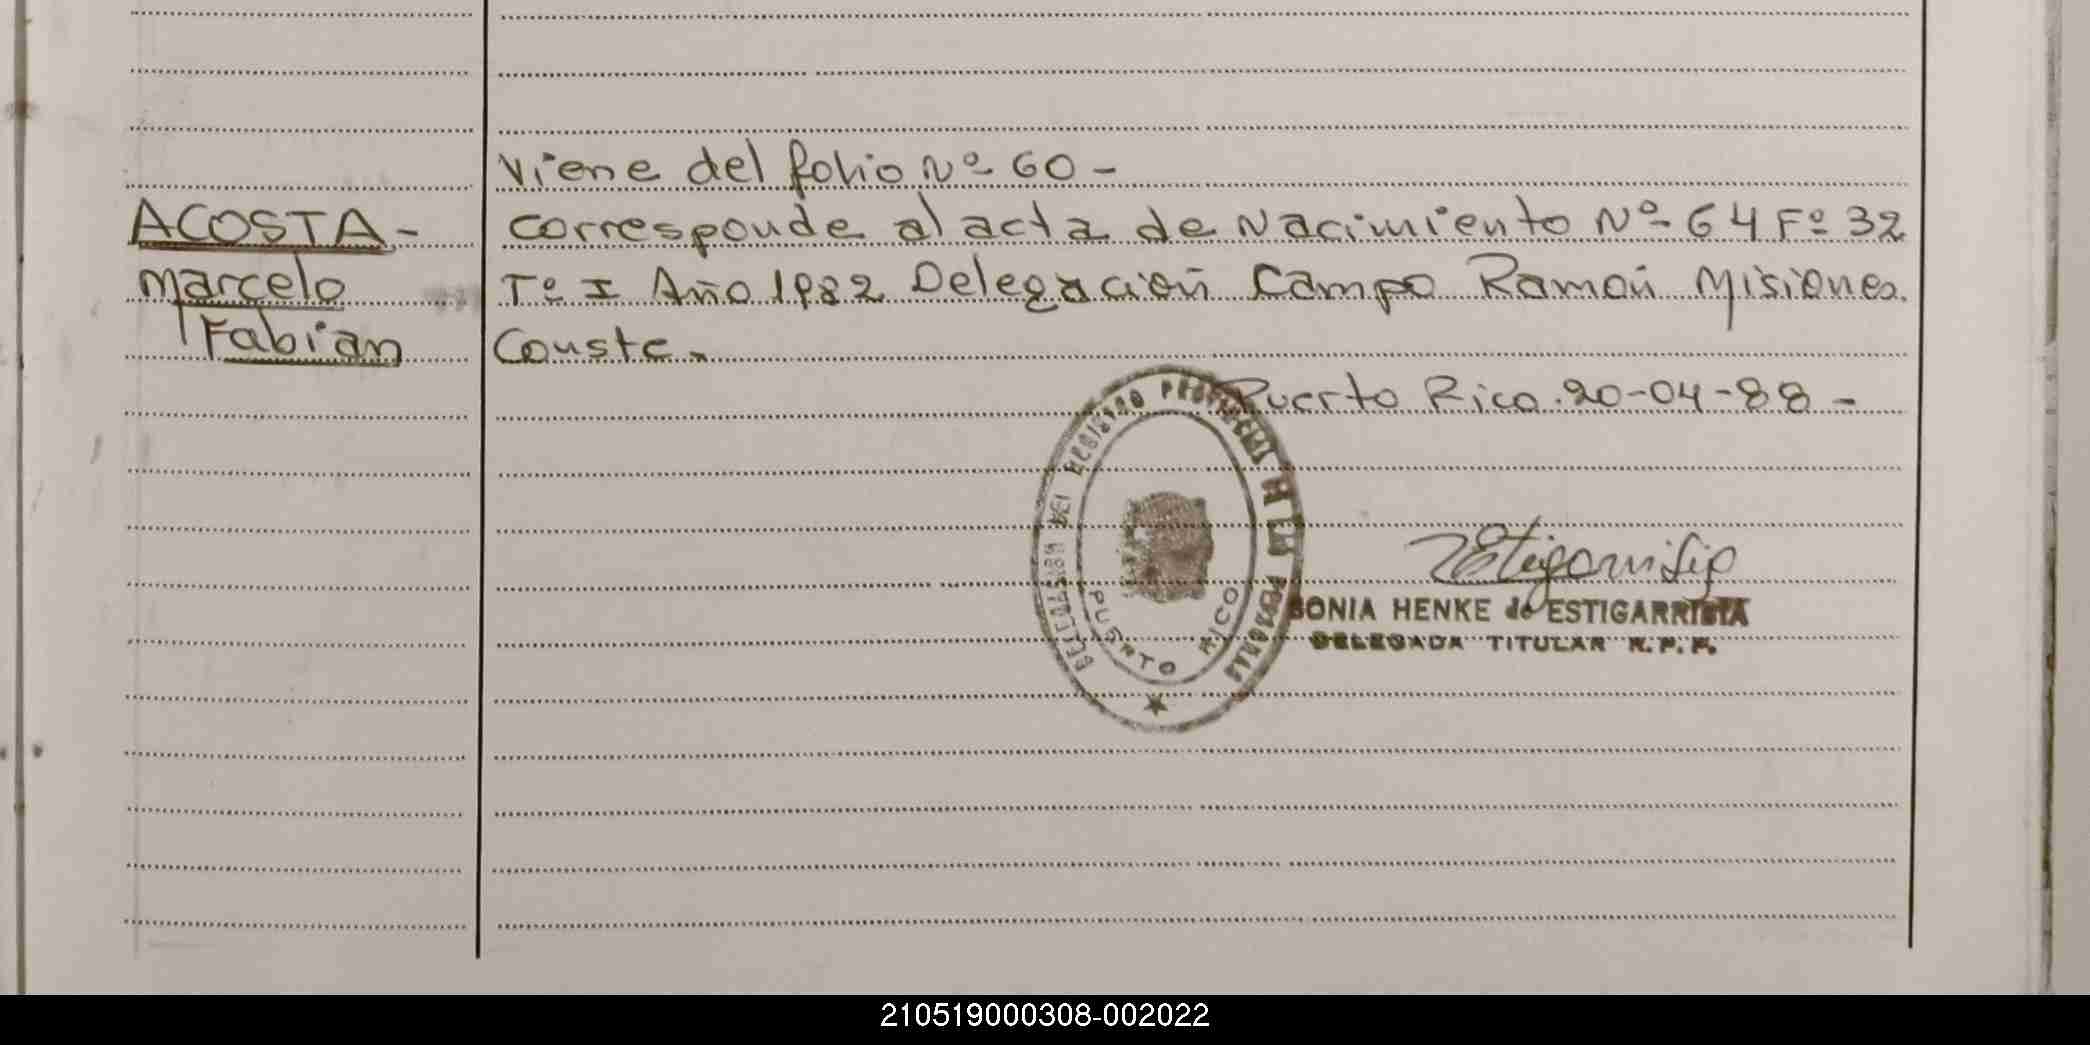 Viene del folio Nº 60 -
ACOSTA - corresponde al acta de Nacimiento Nº 64 Fº 32
Marcelo Tº I Año 1982 Delegación Campo Ramón Misiones.
Fabian Conste.-
Puerto Rico. 20-04-88 -
DELEGACION DEL REGISTRO PROVINCIAL DE LAS PERSONAS
PUERTO RICO
SONIA HENKE de ESTIGARRIBIA
DELEGADA TITULAR R.P.P.
210519000308-002022